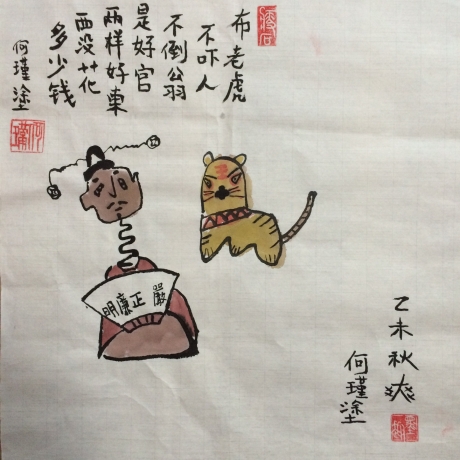 布老虎
不吓人
不倒翁
是好官
两样好東
西没花
多少钱
何瑾塗
嚴正廉明
乙未秋爽
何瑾塗